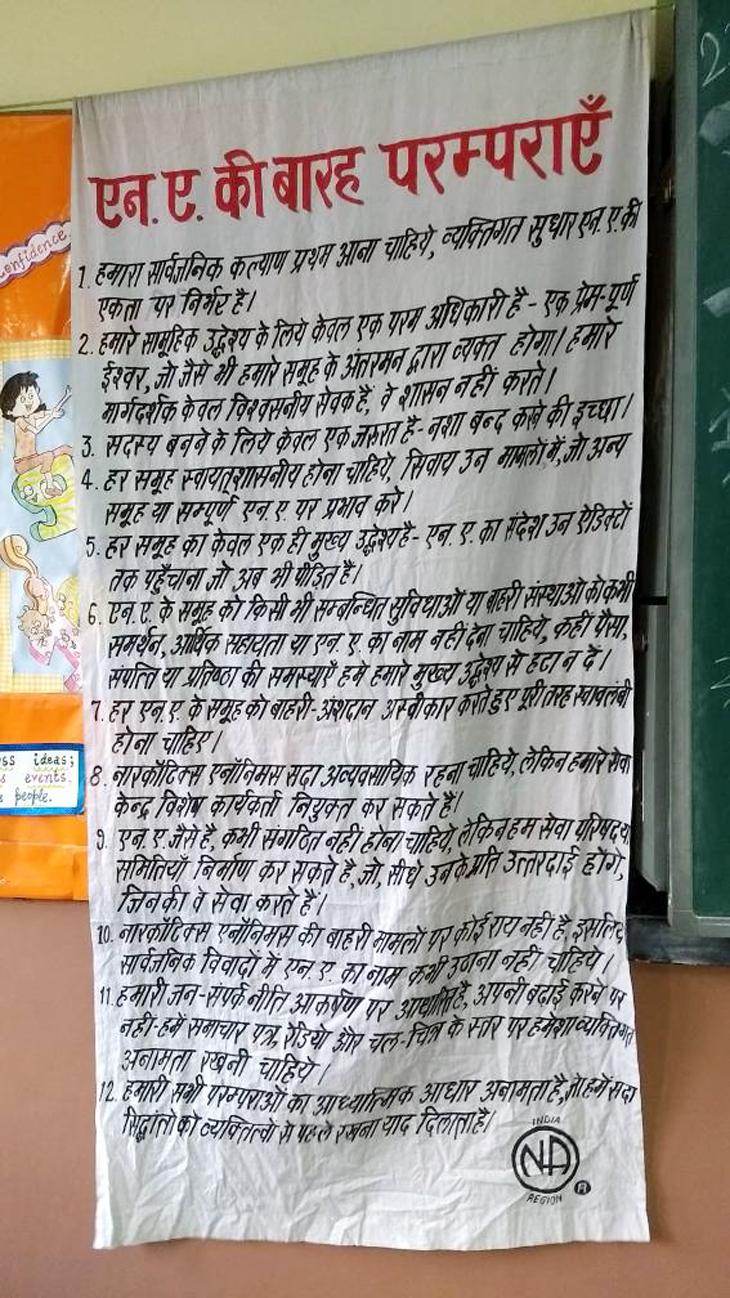 एन. ए. की बारह परम्पराएँ
1. हमारा सार्वजनिक कल्याण प्रथम आना चाहिये, व्यक्तिगत सुधार एन. ए. की
एकता पर निर्भर है।
2. हमारे सामूहिक उद्धेश्य के लिये केवल एक परम अधिकारी है - एक प्रेम-पूर्ण
ईश्वर, जो जैसे भी हमारे समूह के अंतरमन द्वारा व्यक्त होगा। हमारे
मार्गदर्शक केवल विश्वसनीय सेवक हैं, वे शासन नहीं करते।
3. सदस्य बनने के लिये केवल एक जरूरत है- नशा बन्द करने की इच्छा।
4. हर समूह स्वायत्तशासनीय होना चाहिये, सिवाय उन मामलों में, जो अन्य
समूह या सम्पूर्ण एन. ए. पर प्रभाव करे।
5. हर समूह का केवल एक ही मुख्य उद्धेश्य है- एन. ए. का संदेश उन ऐडिक्टों
तक पहुँचाना जो अब भी पीड़ित हैं।
6. एन. ए. के समूह को किसी भी सम्बन्धित सुविधाओं या बाहरी संस्थाओं को कभी
समर्थन, आर्थिक सहायता या एन. ए. का नाम नहीं देना चाहिये, कहीं पैसा,
संपत्ति या प्रतिष्ठा की समस्याएँ हमे हमारे मुख्य उद्धेश्य से हटा न दें।
7. हर एन. ए. के समूह को बाहरी-अंशदान अस्वीकार करते हुए पूरी तरह स्वावलंबी
होना चाहिए।
8. नारकॉटिक्स एनॉनिमस सदा अव्यवसायिक रहना चाहिये, लेकिन हमारे सेवा
केन्द्र विशेष कार्यकर्ता नियुक्त कर सकते हैं।
9. एन. ए. जैसे है, कभी संगठित नहीं होना चाहिये, लेकिन हम सेवा परिषद या
समितियाँ निर्माण कर सकते है, जो, सीधे उनके प्रति उत्तरदाई होंगे,
जिनकी वे सेवा करते हैं।
10. नारकॉटिक्स एनॉनिमस की बाहरी मामलों पर कोई राय नहीं है, इसलिए
सार्वजनिक विवादों में एन. ए. का नाम कभी उठाना नहीं चाहिये।
11. हमारी जन-संपर्क नीति आकर्षण पर आधारित है, अपनी बढ़ाई करने पर
नहीं-हमें समाचार पत्र, रेडियो और चल-चित्र के स्तर पर हमेशा व्यक्तिगत
अनामता रखनी चाहिये।
12. हमारी सभी परम्पराओं का आध्यात्मिक आधार अनामता है, जो हमें सदा
सिद्धांतो को व्यक्तित्वो से पहले रखना याद दिलाता है।
INDIA
NA
REGION
R
onfidence.
ss ideas;
s events.
s people.